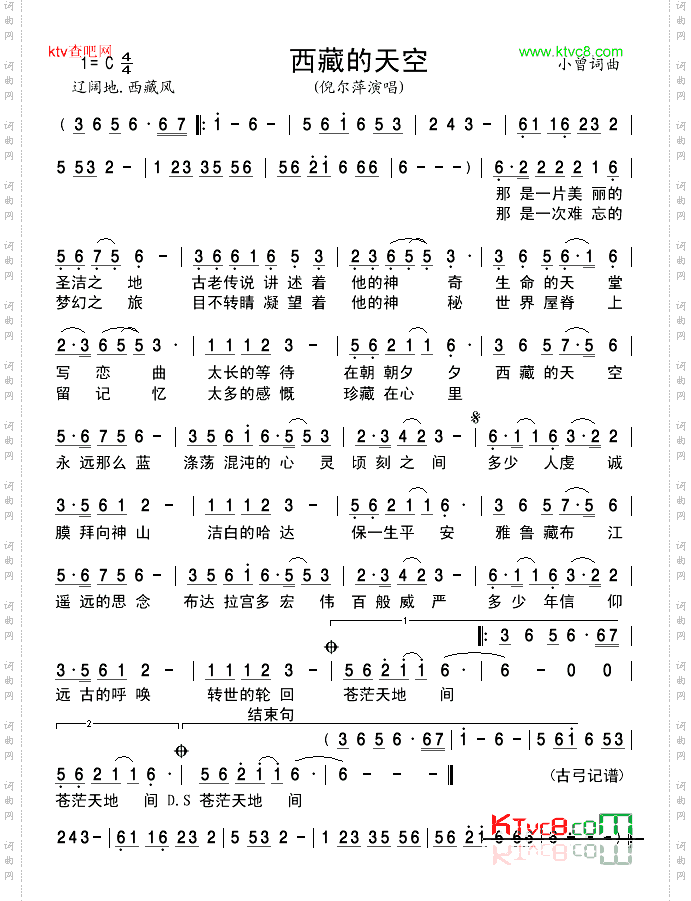 ktv查吧网
1= C 4/4
西藏的天空
www.ktvc8.com
小曾词曲
辽阔地.西藏风
(倪尔萍演唱)
( 3 6 5 6 · 6 7 ‖: i - 6 - | 5 6 i 6 5 3 | 2 4 3 - | 6 1 1 6 2 3 2
5 5 3 2 - | 1 2 3 3 5 5 6 | 5 6 2 i 6 6 6 | 6 - - - ) | 6 · 2 2 2 2 1 6
那 是一片美 丽的
那 是一次难 忘的
5 6 7 5 6 - | 3 6 6 1 6 5 3 | 2 3 6 5 5 3 · | 3 6 5 6 · 1 6
圣洁之 地 古老传说 讲 述着 他的神 奇 生 命 的天 堂
梦幻之 旅 目不转睛 凝 望着 他的神 秘 世 界 屋脊 上
2 · 3 6 5 5 3 · | 1 1 1 2 3 · | 5 6 2 1 6 · | 3 6 5 7 · 5 6
写 恋 曲 太长的等 待 在朝 朝夕 夕 西 藏 的天 空
留 记 忆 太多的感 慨 珍藏 在心 里
5 · 6 7 5 6 - | 3 5 6 i 6 · 5 5 3 | 2 · 3 4 2 3 - | 6 · 1 1 6 3 · 2 2
永 远那么 蓝 涤荡 混沌的 心 灵 顷 刻 之 间 多少 人虔 诚
3 · 5 6 1 2 - | 1 1 1 2 3 - | 5 6 2 1 1 6 · | 3 6 5 7 · 5 6
膜 拜向神 山 洁白的哈 达 保一生平 安 雅 鲁 藏布 江
5 · 6 7 5 6 - | 3 5 6 i 6 · 5 5 3 | 2 · 3 4 2 3 - | 6 · 1 1 6 3 · 2 2
遥 远的思 念 布达 拉宫多 宏 伟 百 般 威 严 多 少 年信 仰
1
‖: 3 6 5 6 · 6 7
3 · 5 6 1 2 - | 1 1 1 2 3 - | 5 6 2 1 1 6 | 6 - 0 0 :‖
远 古的呼 唤 转世的轮 回 苍茫天地 间
结束句
2
( 3 6 5 6 · 6 7 | i - 6 - | 5 6 i 6 5 3
5 6 2 1 1 6 · | 5 6 2 1 1 6 · | 6 - - - ‖ (古弓记谱)
苍茫天地 间 D.S 苍茫天地 间
KTvc8.com
2 4 3 - | 6 1 1 6 2 3 2 | 5 5 3 2 - | 1 2 3 3 5 5 6 | 5 6 2 i
词曲网